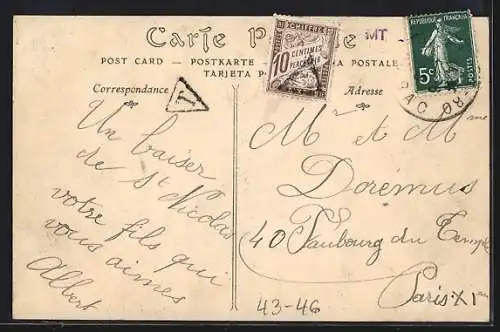 Carte P
POST CARD — POSTKARTE
TARJETA PO
A POSTALE
CHIFFRE
10
CENTIMES
A
PERCEVOIR
MT
RÉPUBLIQUE FRANÇAISE
5c
POSTES
Correspondance
T
Adresse
Un baiser
de St Nicolas
votre fils qui
vous aimes
Albert
Mr et Mme
Dorémus
40 Faubourg du Temple
Paris XIme
43-46